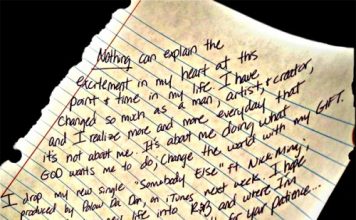 Nothing can explain the
excitement in my heart at this
point & time in my life. I have
changed so much as a man, artist, & creator,
and I realize more and more everyday that
it's not about me. It's about me doing what
GOD wants me to do; change the world with my GIFT.
I drop my new single "Somebody Else" ft Nicki Minaj;
produced by Polow Da Don, on iTunes next week. I hope
life into R&B and where I'm
your patience...